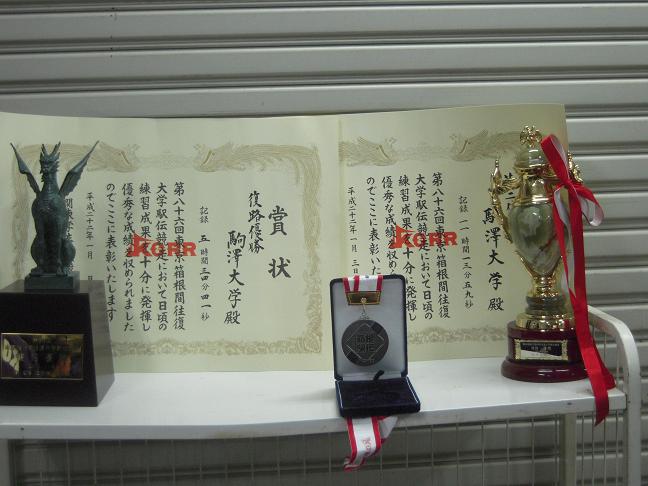 賞状
復路優勝
駒澤大学殿
記録 五時間三四分四一秒
第八十六回東京箱根間往復
大学駅伝競走において日頃の
練習成果を十分に発揮し
優秀な成績を収められました
のでここに表彰いたします
平成二十二年一月
KGRR
駒澤大学殿
記録 一一時間一三分五九秒
第八十六回東京箱根間往復
大学駅伝競走において日頃の
練習成果を十分に発揮し
優秀な成績を収められました
のでここに表彰いたします
平成二十二年一月三日
KGRR
箱根
駅伝